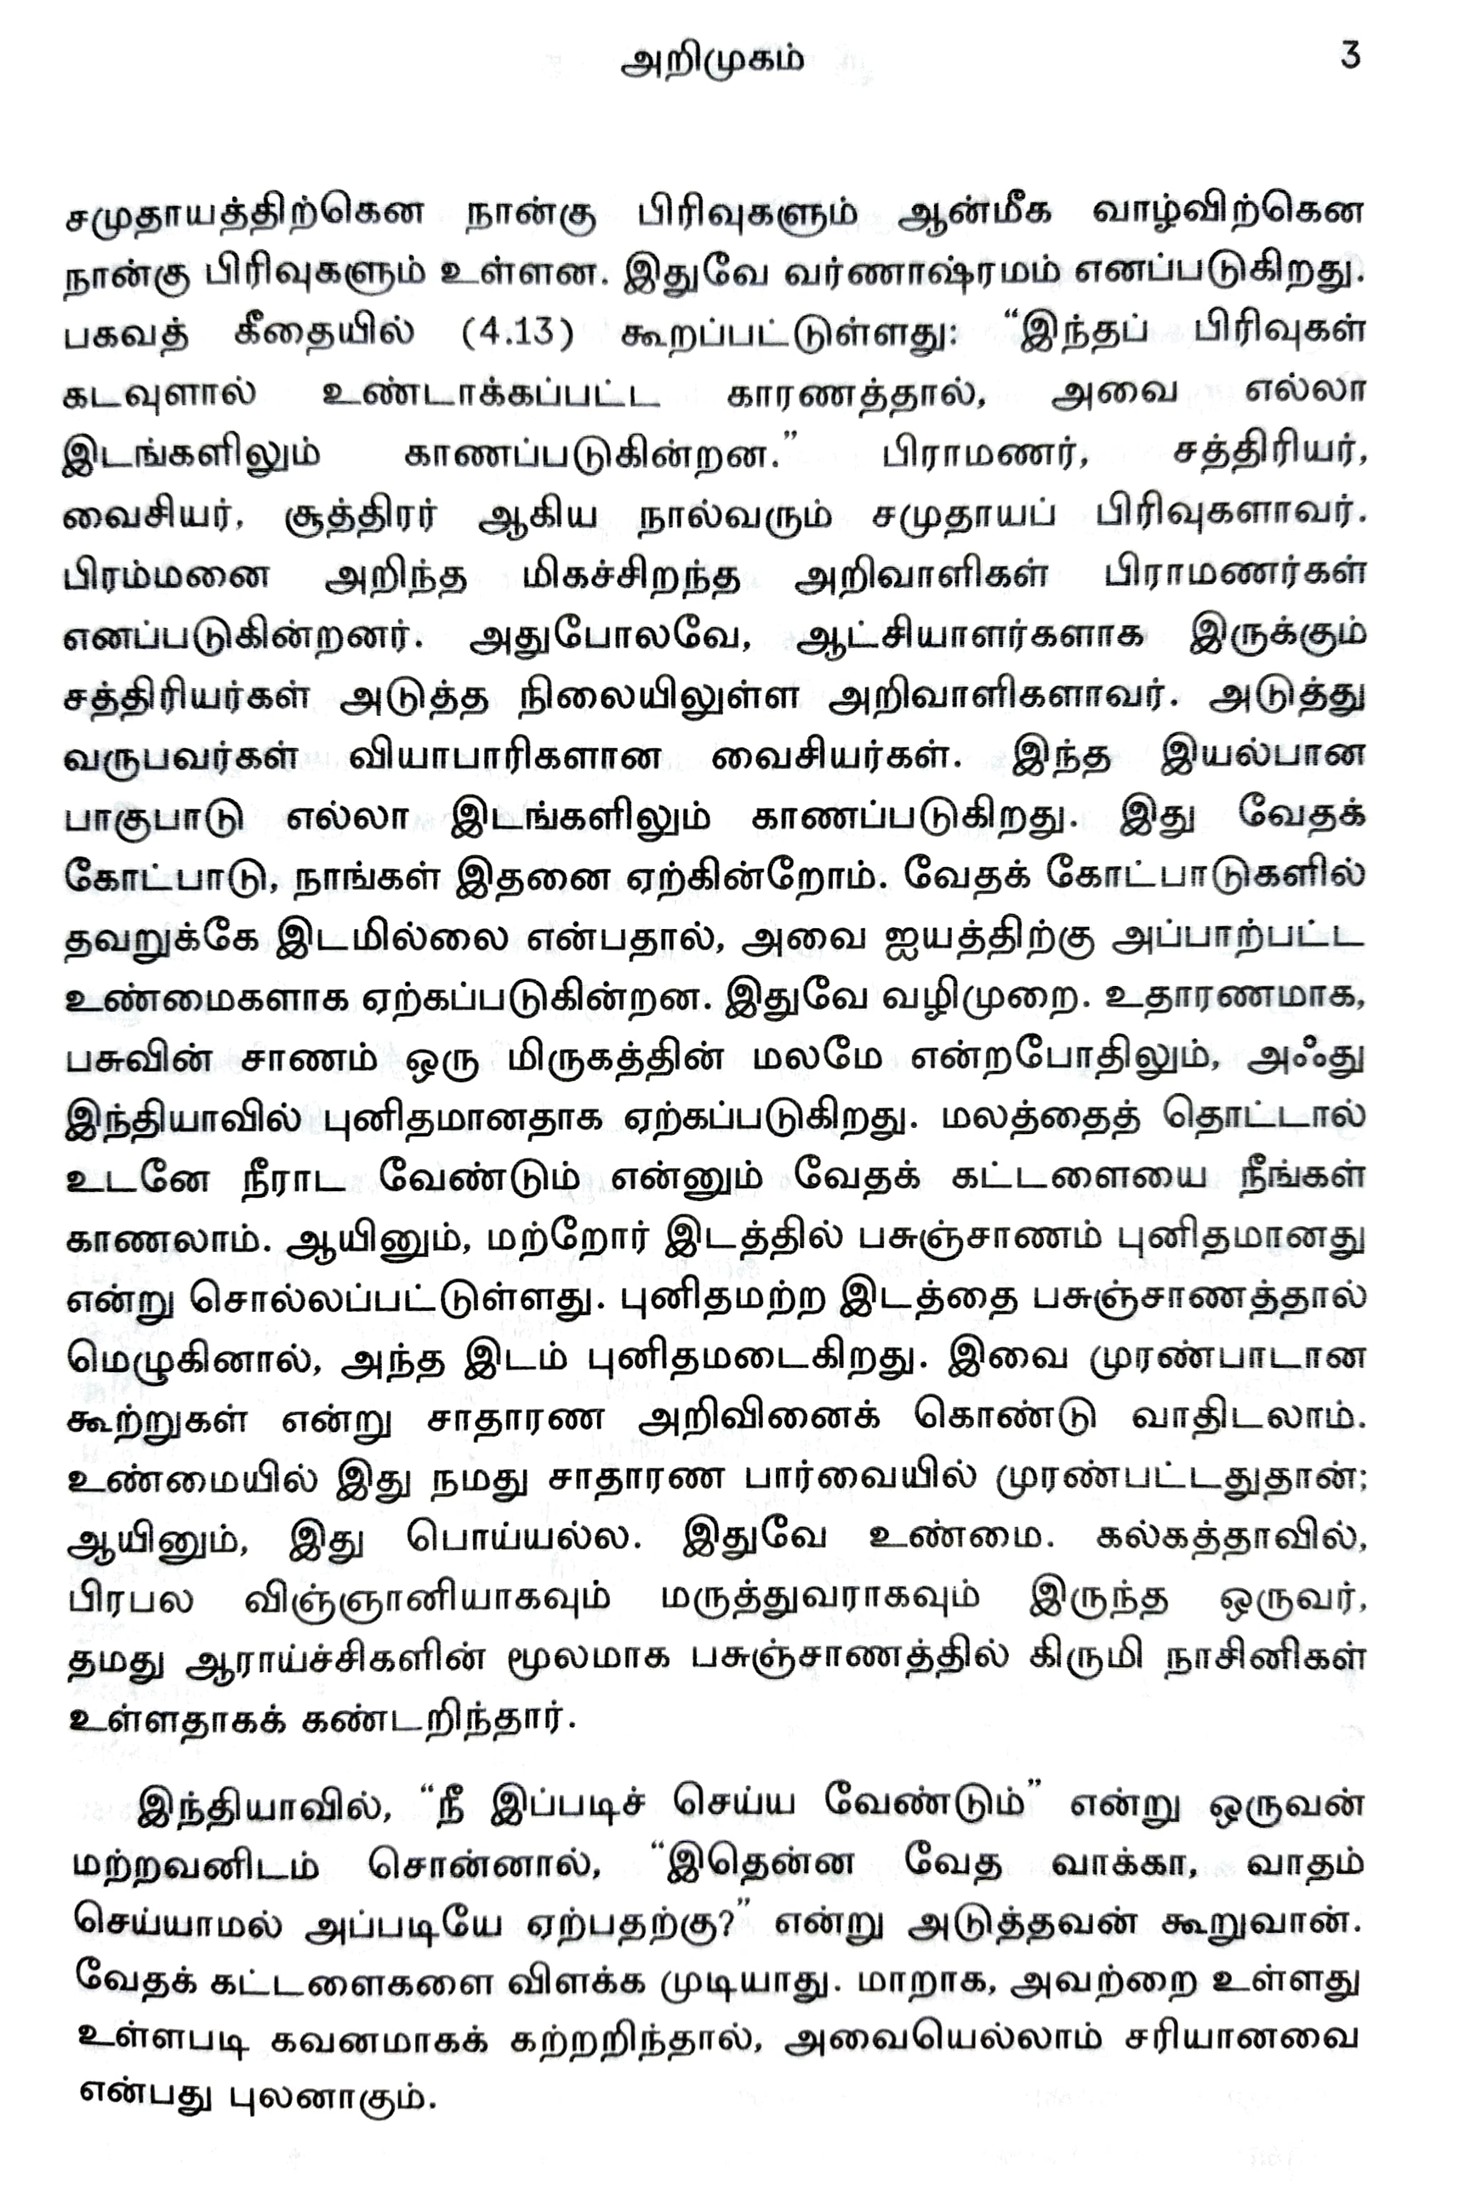 அறிமுகம் 3
சமுதாயத்திற்கென நான்கு பிரிவுகளும் ஆன்மீக வாழ்விற்கென
நான்கு பிரிவுகளும் உள்ளன. இதுவே வர்ணாஷ்ரமம் எனப்படுகிறது.
பகவத் கீதையில் (4.13) கூறப்பட்டுள்ளது: “இந்தப் பிரிவுகள்
கடவுளால் உண்டாக்கப்பட்ட காரணத்தால், அவை எல்லா
இடங்களிலும் காணப்படுகின்றன.” பிராமணர், சத்திரியர்,
வைசியர், சூத்திரர் ஆகிய நால்வரும் சமுதாயப் பிரிவுகளாவர்.
பிரம்மனை அறிந்த மிகச்சிறந்த அறிவாளிகள் பிராமணர்கள்
எனப்படுகின்றனர். அதுபோலவே, ஆட்சியாளர்களாக இருக்கும்
சத்திரியர்கள் அடுத்த நிலையிலுள்ள அறிவாளிகளாவர். அடுத்து
வருபவர்கள் வியாபாரிகளான வைசியர்கள். இந்த இயல்பான
பாகுபாடு எல்லா இடங்களிலும் காணப்படுகிறது. இது வேதக்
கோட்பாடு, நாங்கள் இதனை ஏற்கின்றோம். வேதக் கோட்பாடுகளில்
தவறுக்கே இடமில்லை என்பதால், அவை ஐயத்திற்கு அப்பாற்பட்ட
உண்மைகளாக ஏற்கப்படுகின்றன. இதுவே வழிமுறை. உதாரணமாக,
பசுவின் சாணம் ஒரு மிருகத்தின் மலமே என்றபோதிலும், அஃது
இந்தியாவில் புனிதமானதாக ஏற்கப்படுகிறது. மலத்தைத் தொட்டால்
உடனே நீராட வேண்டும் என்னும் வேதக் கட்டளையை நீங்கள்
காணலாம். ஆயினும், மற்றோர் இடத்தில் பசுஞ்சாணம் புனிதமானது
என்று சொல்லப்பட்டுள்ளது. புனிதமற்ற இடத்தை பசுஞ்சாணத்தால்
மெழுகினால், அந்த இடம் புனிதமடைகிறது. இவை முரண்பாடான
கூற்றுகள் என்று சாதாரண அறிவினைக் கொண்டு வாதிடலாம்.
உண்மையில் இது நமது சாதாரண பார்வையில் முரண்பட்டதுதான்;
ஆயினும், இது பொய்யல்ல. இதுவே உண்மை. கல்கத்தாவில்,
பிரபல விஞ்ஞானியாகவும் மருத்துவராகவும் இருந்த ஒருவர்,
தமது ஆராய்ச்சிகளின் மூலமாக பசுஞ்சாணத்தில் கிருமி நாசினிகள்
உள்ளதாகக் கண்டறிந்தார்.
இந்தியாவில், “நீ இப்படிச் செய்ய வேண்டும்” என்று ஒருவன்
மற்றவனிடம் சொன்னால், “இதென்ன வேத வாக்கா, வாதம்
செய்யாமல் அப்படியே ஏற்பதற்கு?” என்று அடுத்தவன் கூறுவான்.
வேதக் கட்டளைகளை விளக்க முடியாது. மாறாக, அவற்றை உள்ளது
உள்ளபடி கவனமாகக் கற்றறிந்தால், அவையெல்லாம் சரியானவை
என்பது புலனாகும்.